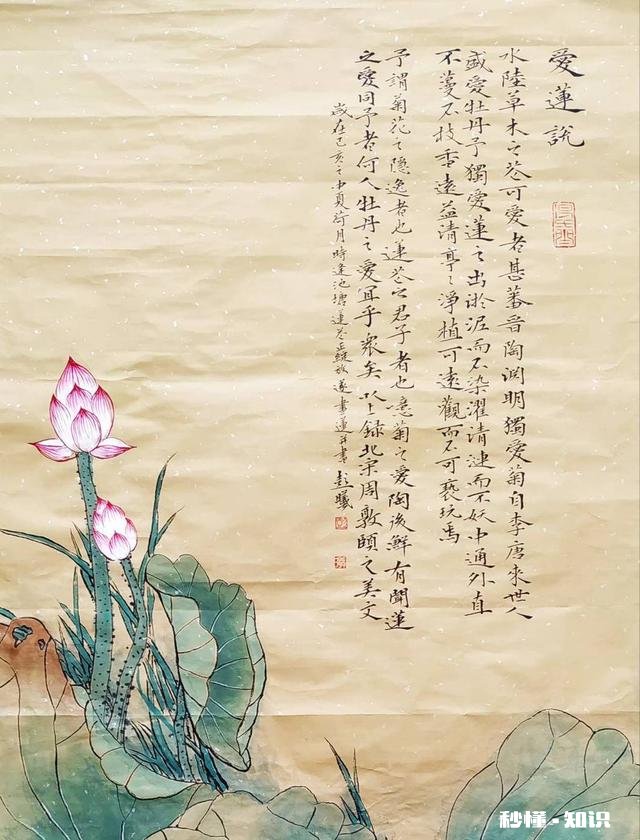 愛蓮說
水陸草木之花可愛者甚蕃晋陶渊明獨愛菊自李唐来世人
盛愛牡丹予獨愛蓮之出淤泥而不染濯清漣而不妖中通外直
不蔓不枝香遠益清亭〻淨植可遠觀而不可褻玩焉
予謂菊花之隱逸者也蓮花之君子者也噫菊之愛陶後鮮有聞蓮
之愛同予者何人牡丹之愛宜乎衆矣以上録北宋周敦頤之美文
歲在己亥之中夏荷月時逢池塘蓮花正綻放遂畫蓮并書 彭曦
秒懂-知识